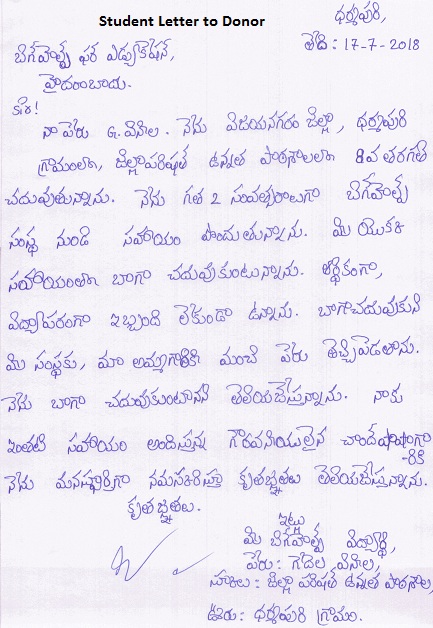 Student Letter to Donor
ధర్మపురి,
తేది : 17-7-2018
బిగ్‌హెల్ప్ ఫర్ ఎడ్యుకేషన్,
హైదరాబాదు.
సార్!
నా పేరు G. వినీల. నేను విజయనగరం జిల్లా, ధర్మపురి
గ్రామంలోని, జిల్లాపరిషత్ ఉన్నత పాఠశాలలో 8వ తరగతి
చదువుతున్నాను. నేను గత 2 సంవత్సరాలుగా బిగ్‌హెల్ప్
సంస్థ నుండి సహాయం పొందుతున్నాను. మీ యొక్క
సహాయంతో బాగా చదువుకుంటున్నాను. ఆర్థికంగా,
విద్యాపరంగా ఇబ్బంది లేకుండా ఉన్నాను. బాగాచదువుకుని
మీ సంస్థకు, మా అమ్మగారికి మంచి పేరు తెచ్చిపెడతాను.
నేను బాగా చదువుకుంటానని తెలియచేస్తున్నాను. నాకు
ఇంతటి సహాయం అందిస్తున్న గౌరవనీయులైన
-రికి
నేను మనస్ఫూర్తిగా నమస్కరిస్తూ కృతజ్ఞతలు తెలియచేస్తున్నాను.
కృతజ్ఞతలు.
ఇట్లు
మీ బిగ్‌హెల్ప్ విద్యార్థి,
పేరు : గేదెల వినీల,
స్కూలు : జిల్లా పరిషత్ ఉన్నత పాఠశాల,
ఊరు : ధర్మపురి గ్రామం.